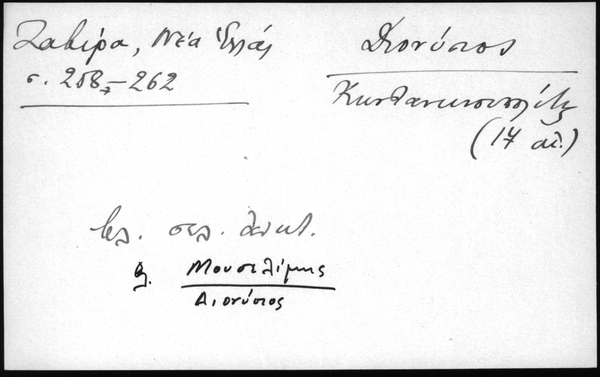 Ζαβίρα, Νέα Ἑλλάς
σ. 258-262
Διονύσιος
Κωνσταντινουπολίτης
(17 αἰ.)
βλ. σελ. λευκ.
βλ. Μουσελίμης
Διονύσιος